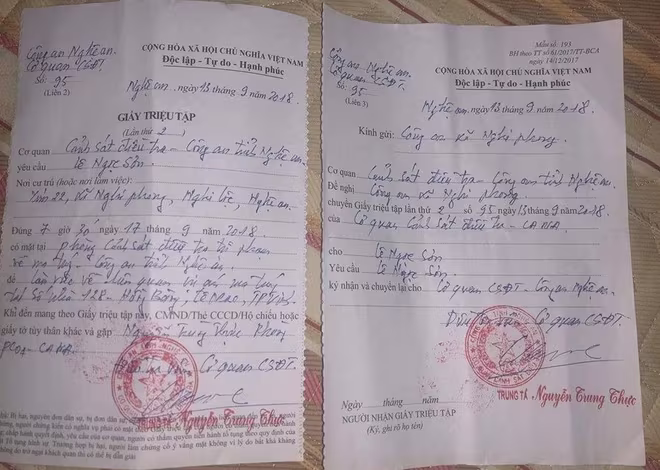 Công an Nghệ an.
Cơ quan CSĐT.
Số: 95
(Liên 2)
CỘNG HÒA XÃ HỘI CHỦ NGHĨA VIỆT NAM
Độc lập - Tự do - Hạnh phúc
Nghệ an, ngày 13 tháng 9 năm 2018
GIẤY TRIỆU TẬP
(Lần thứ 2)
Cơ quan Cảnh sát điều tra - Công an tỉnh Nghệ an.
yêu cầu Lê Ngọc Sơn.
Nơi cư trú (hoặc nơi làm việc):
Xóm 22, xã Nghi phong, Nghi Lộc, Nghệ an.
Đúng 7 giờ 30 ngày 17 tháng 9 năm 2018
có mặt tại phòng Cảnh sát điều tra tội phạm
về ma túy - Công an tỉnh Nghệ an
để làm việc về liên quan vụ án ma túy
tại Số nhà 128 - Hồng Bàng, Lê Mao, TP Vinh.
Khi đến mang theo Giấy triệu tập này, CMND/Thẻ CCCD/Hộ chiếu hoặc
giấy tờ tùy thân khác và gặp Nguyễn Trung Thực Phòng
PC04 - CANA.
Cơ quan CSĐT.
TRUNG TÁ Nguyễn Trung Thực
Mẫu số: 193
BH theo TT số 61/2017/TT-BCA
ngày 14/12/2017
Công an Nghệ an.
Cơ quan CSĐT.
Số: 95
(Liên 3)
CỘNG HÒA XÃ HỘI CHỦ NGHĨA VIỆT NAM
Độc lập - Tự do - Hạnh phúc
Nghệ an, ngày 13 tháng 9 năm 2018.
Kính gửi: Công an xã Nghi phong.
Cơ quan Cảnh sát điều tra - Công an tỉnh Nghệ an.
Đề nghị Công an xã Nghi phong.
chuyển Giấy triệu tập lần thứ 2 số 95 ngày 13 tháng 9 năm 2018.
của Cơ quan Cảnh sát điều tra - CANA
cho Lê Ngọc Sơn
Yêu cầu Lê Ngọc Sơn.
ký nhận và chuyển lại cho Cơ quan CSĐT - Công an Nghệ an.
Cơ quan CSĐT.
TRUNG TÁ Nguyễn Trung Thực
Ngày tháng năm
NGƯỜI NHẬN GIẤY TRIỆU TẬP
(Ký, ghi rõ họ tên)